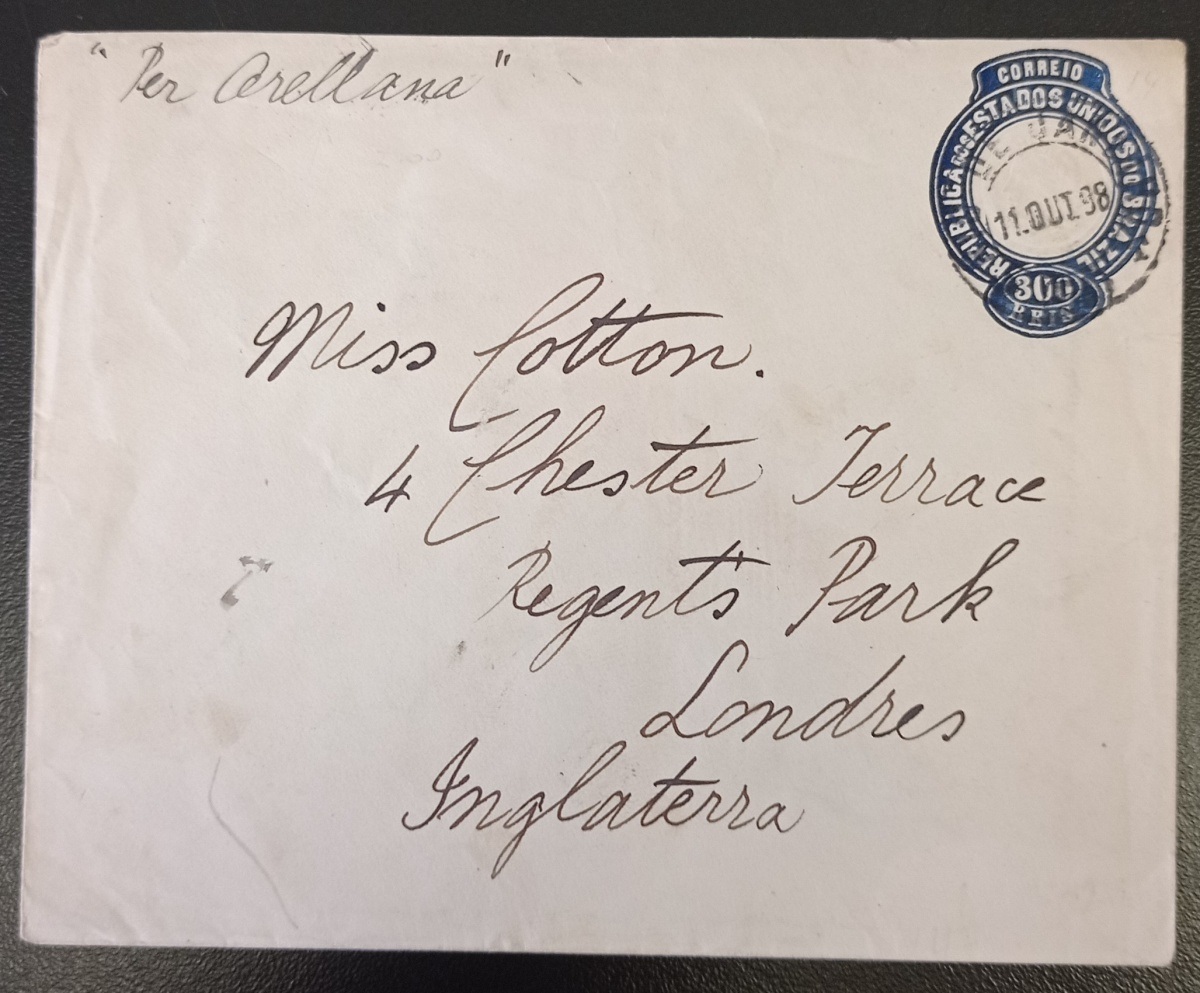 "Per Orellana"
CORREIO
REPUBLICA DOS ESTADOS UNIDOS DO BRAZIL
DE JAN
11.OUT.98
300
REIS
Miss Cotton.
4 Chester Terrace
Regent's Park
Londres
Inglaterra